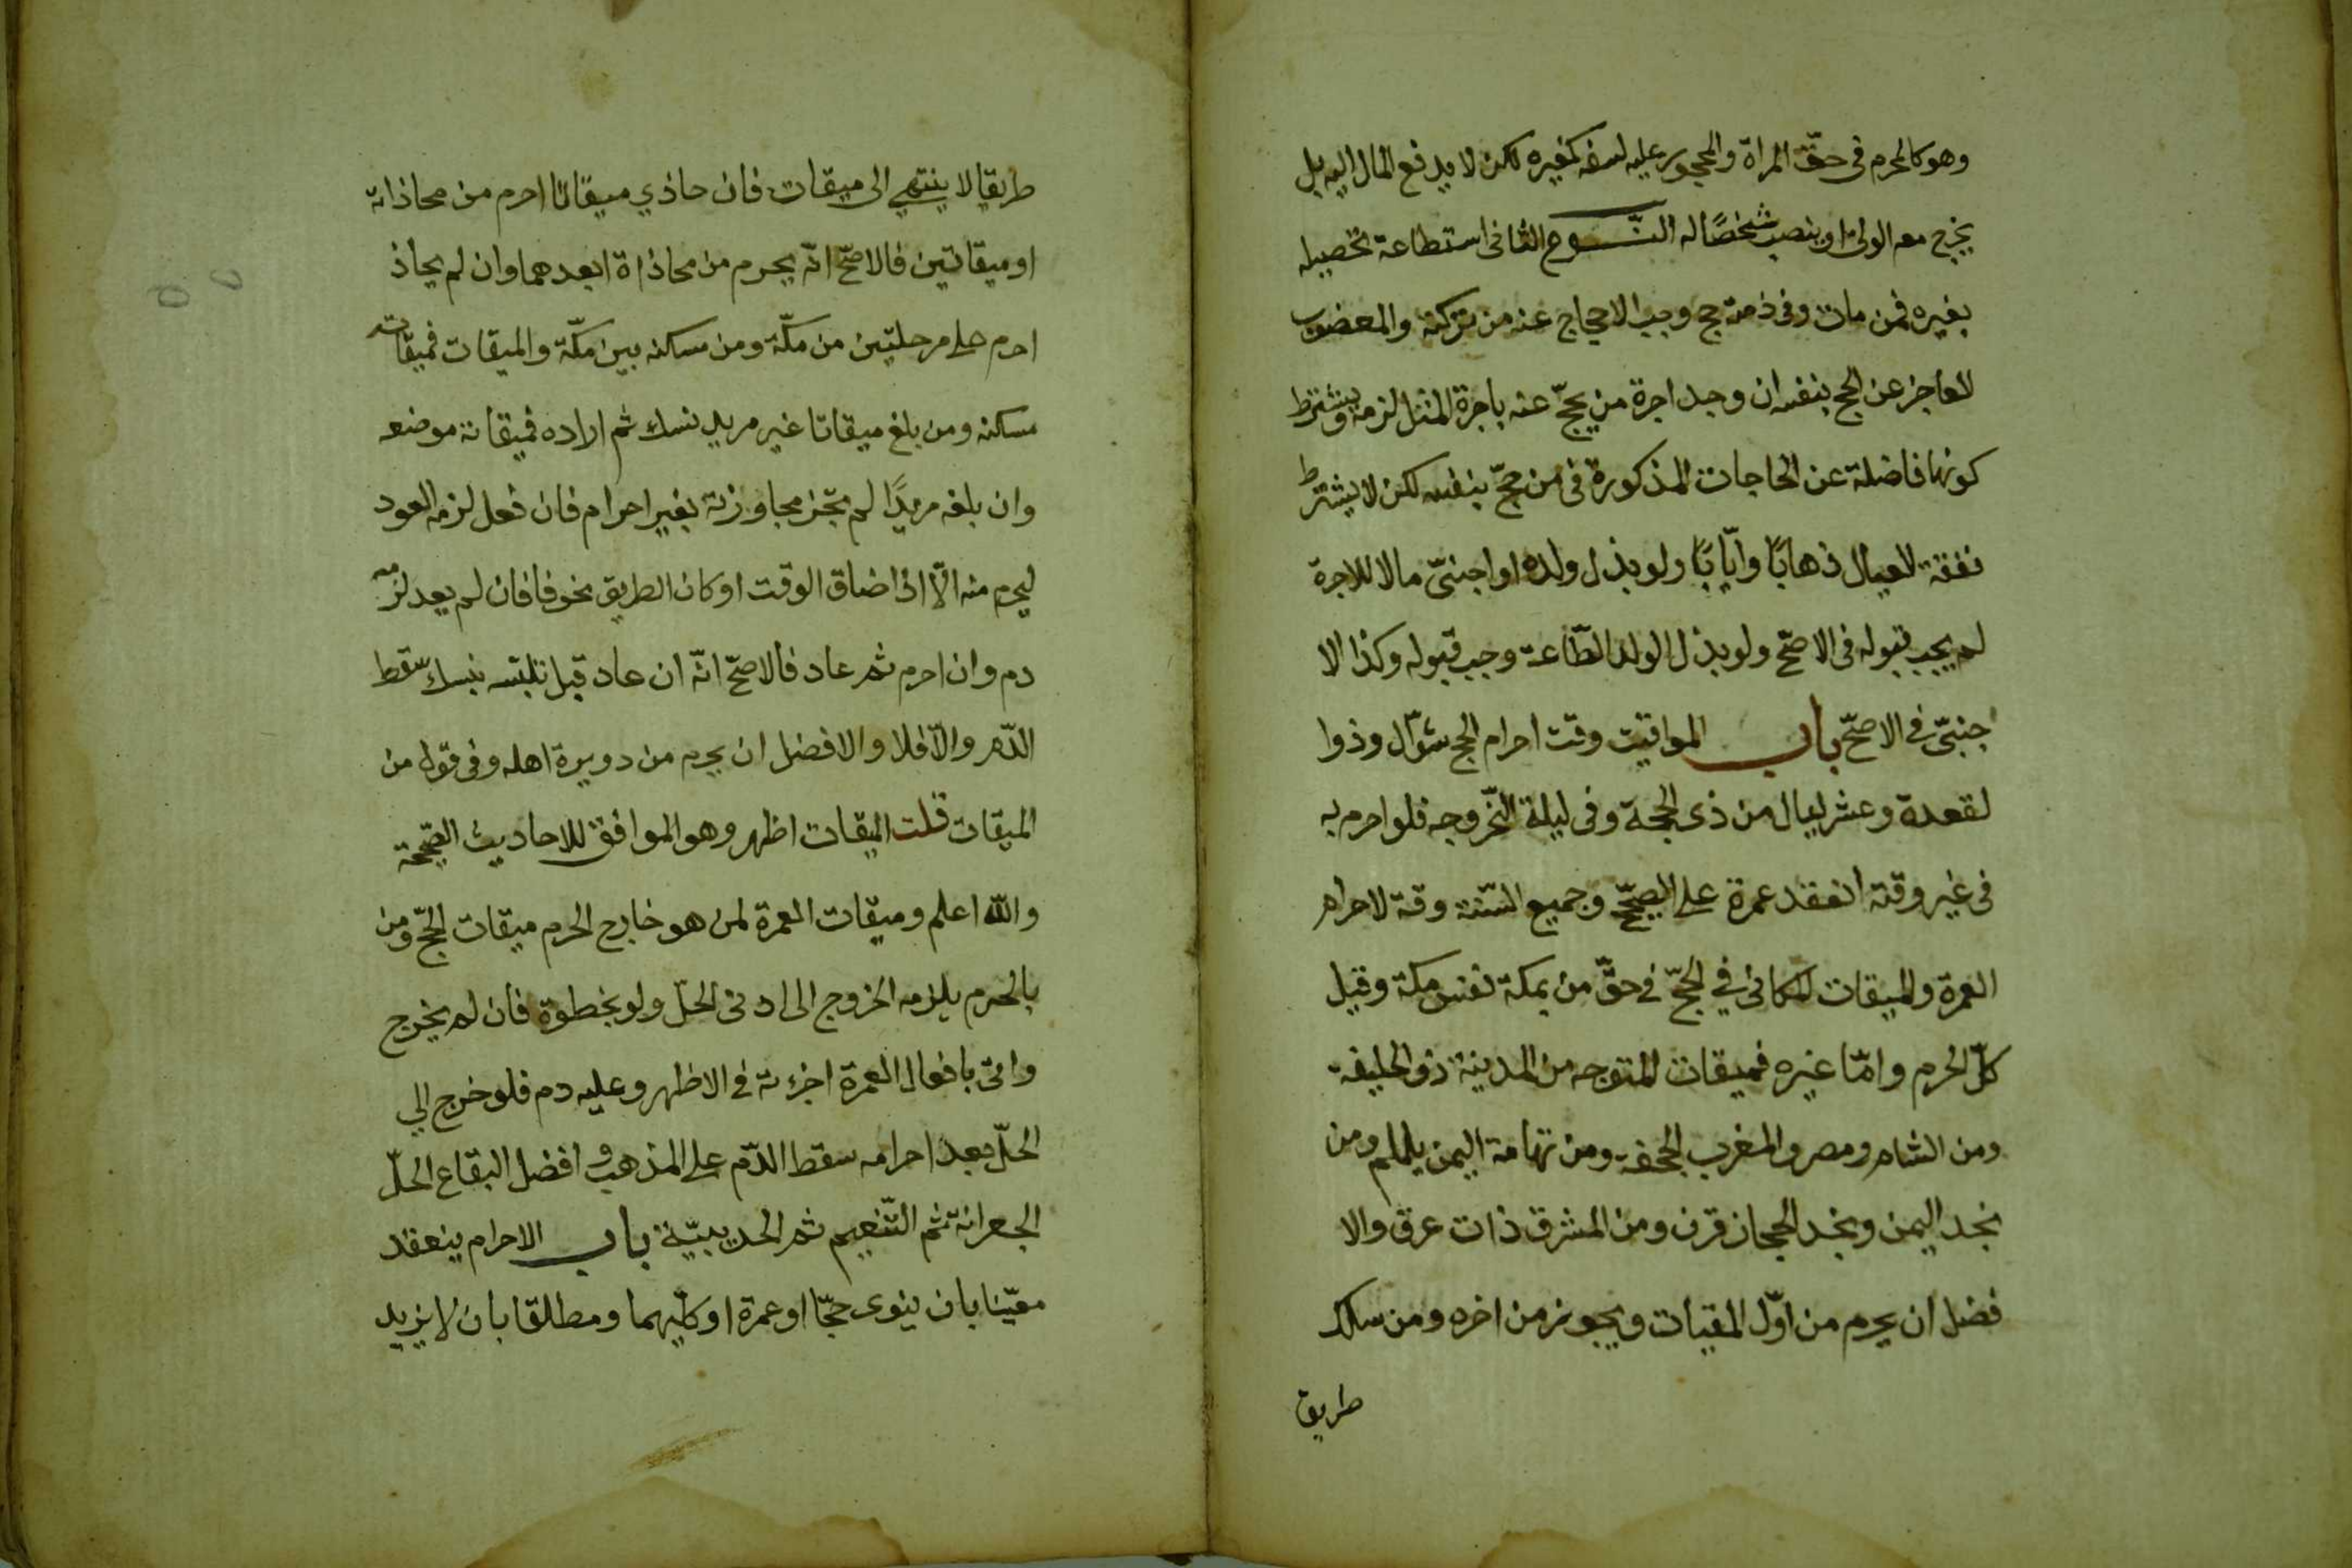 وهو كالمحرم في حقّ المراة والمحجور عليه لسفه كغيره لكن لا يدفع المال اليه بل
يخرج معه الولي او ينصب شخصًا له النّوع الثاني استطاعة تحصيله
بغيره فمن مات وفي ذمته حج وجب الاحجاج عنه من تركته والمعضوب
العاجز عن الحج بنفسه ان وجد اجرة من يحجّ عنه باجرة المثل لزمه ويشترط
كونها فاضلة عن الحاجات المذكورة في من حجّ بنفسه لكن لا يشترط
نفقة العيال ذهابًا وايّابًا ولو بذل ولده او اجنبيّ مالا للاجرة
لم يجب قبوله في الاصحّ ولو بذل الولد الطّاعة وجب قبوله وكذا الا
جنبيّ في الاصحّ باب المواقيت وقت احرام الحج شوّال وذوا
لقعدة وعشر ليال من ذي الحجة وفي ليلة النّحر وجه فلو احرم به
في غير وقته انعقد عمرة على الصحّيح وجميع السّنة وقت لاحرام
العمرة والميقات المكاني في الحجّ في حقّ من بمكة نفس مكة وقيل
كلّ الحرم وامّا غيره فميقات المتوجه من المدينة ذو الحليفة
ومن الشام ومصر والمغرب الجحفة ومن تهامة اليمن يلملم ومن
نجد اليمن ونجد الحجاز قرن ومن المشرق ذات عرق والا
فضل ان يحرم من اوّل المقيات ويجوز من اخره ومن سلك
طريقا
طريقا لا ينتهي الى ميقات فان حاذي ميقاتا احرم من محاذاته
او ميقاتين فالاصحّ انّه يحرم من محاذاة ابعدهما وان لم يحاذ
احرم على مرحلتين من مكّة ومن مسكنه بين مكّة والميقات فميقاته
مسكنه ومن بلغ ميقاتا غير مريد نسك ثم اراده فميقاته موضعه
وان بلغه مريدًا لم تجز مجاوزته بغير احرام فان فعل لزمه العود
ليحرم منه الّا اذا ضاق الوقت او كان الطريق مخوفا فان لم يعد لزمه
دم وان احرم ثم عاد فالاصحّ انّه ان عاد قبل تلبّسه بنسك سقط
الدّم والّا فلا والافضل ان يحرم من دويرة اهله وفي قول من
الميقات قلت الميقات اظهر وهو الموافق للاحاديث الصّحيحة
والله اعلم وميقات العمرة لمن هو خارج الحرم ميقات الحجّ ومن
بالحرم يلزمه الخروج الى ادنى الحلّ ولو بخطوة فان لم يخرج
واتى بافعال العمرة اجزءته في الاظهر وعليه دم فلو خرج الي
الحلّ بعد احرامه سقط الدّم على المذهب وافضل البقاع الحلّ
الجعرانة ثم التّنعيم ثم الحديبيّة باب الاحرام ينعقد
معيّنا بان ينوى حجّا او عمرة او كليهما ومطلقا بان لا يزيد